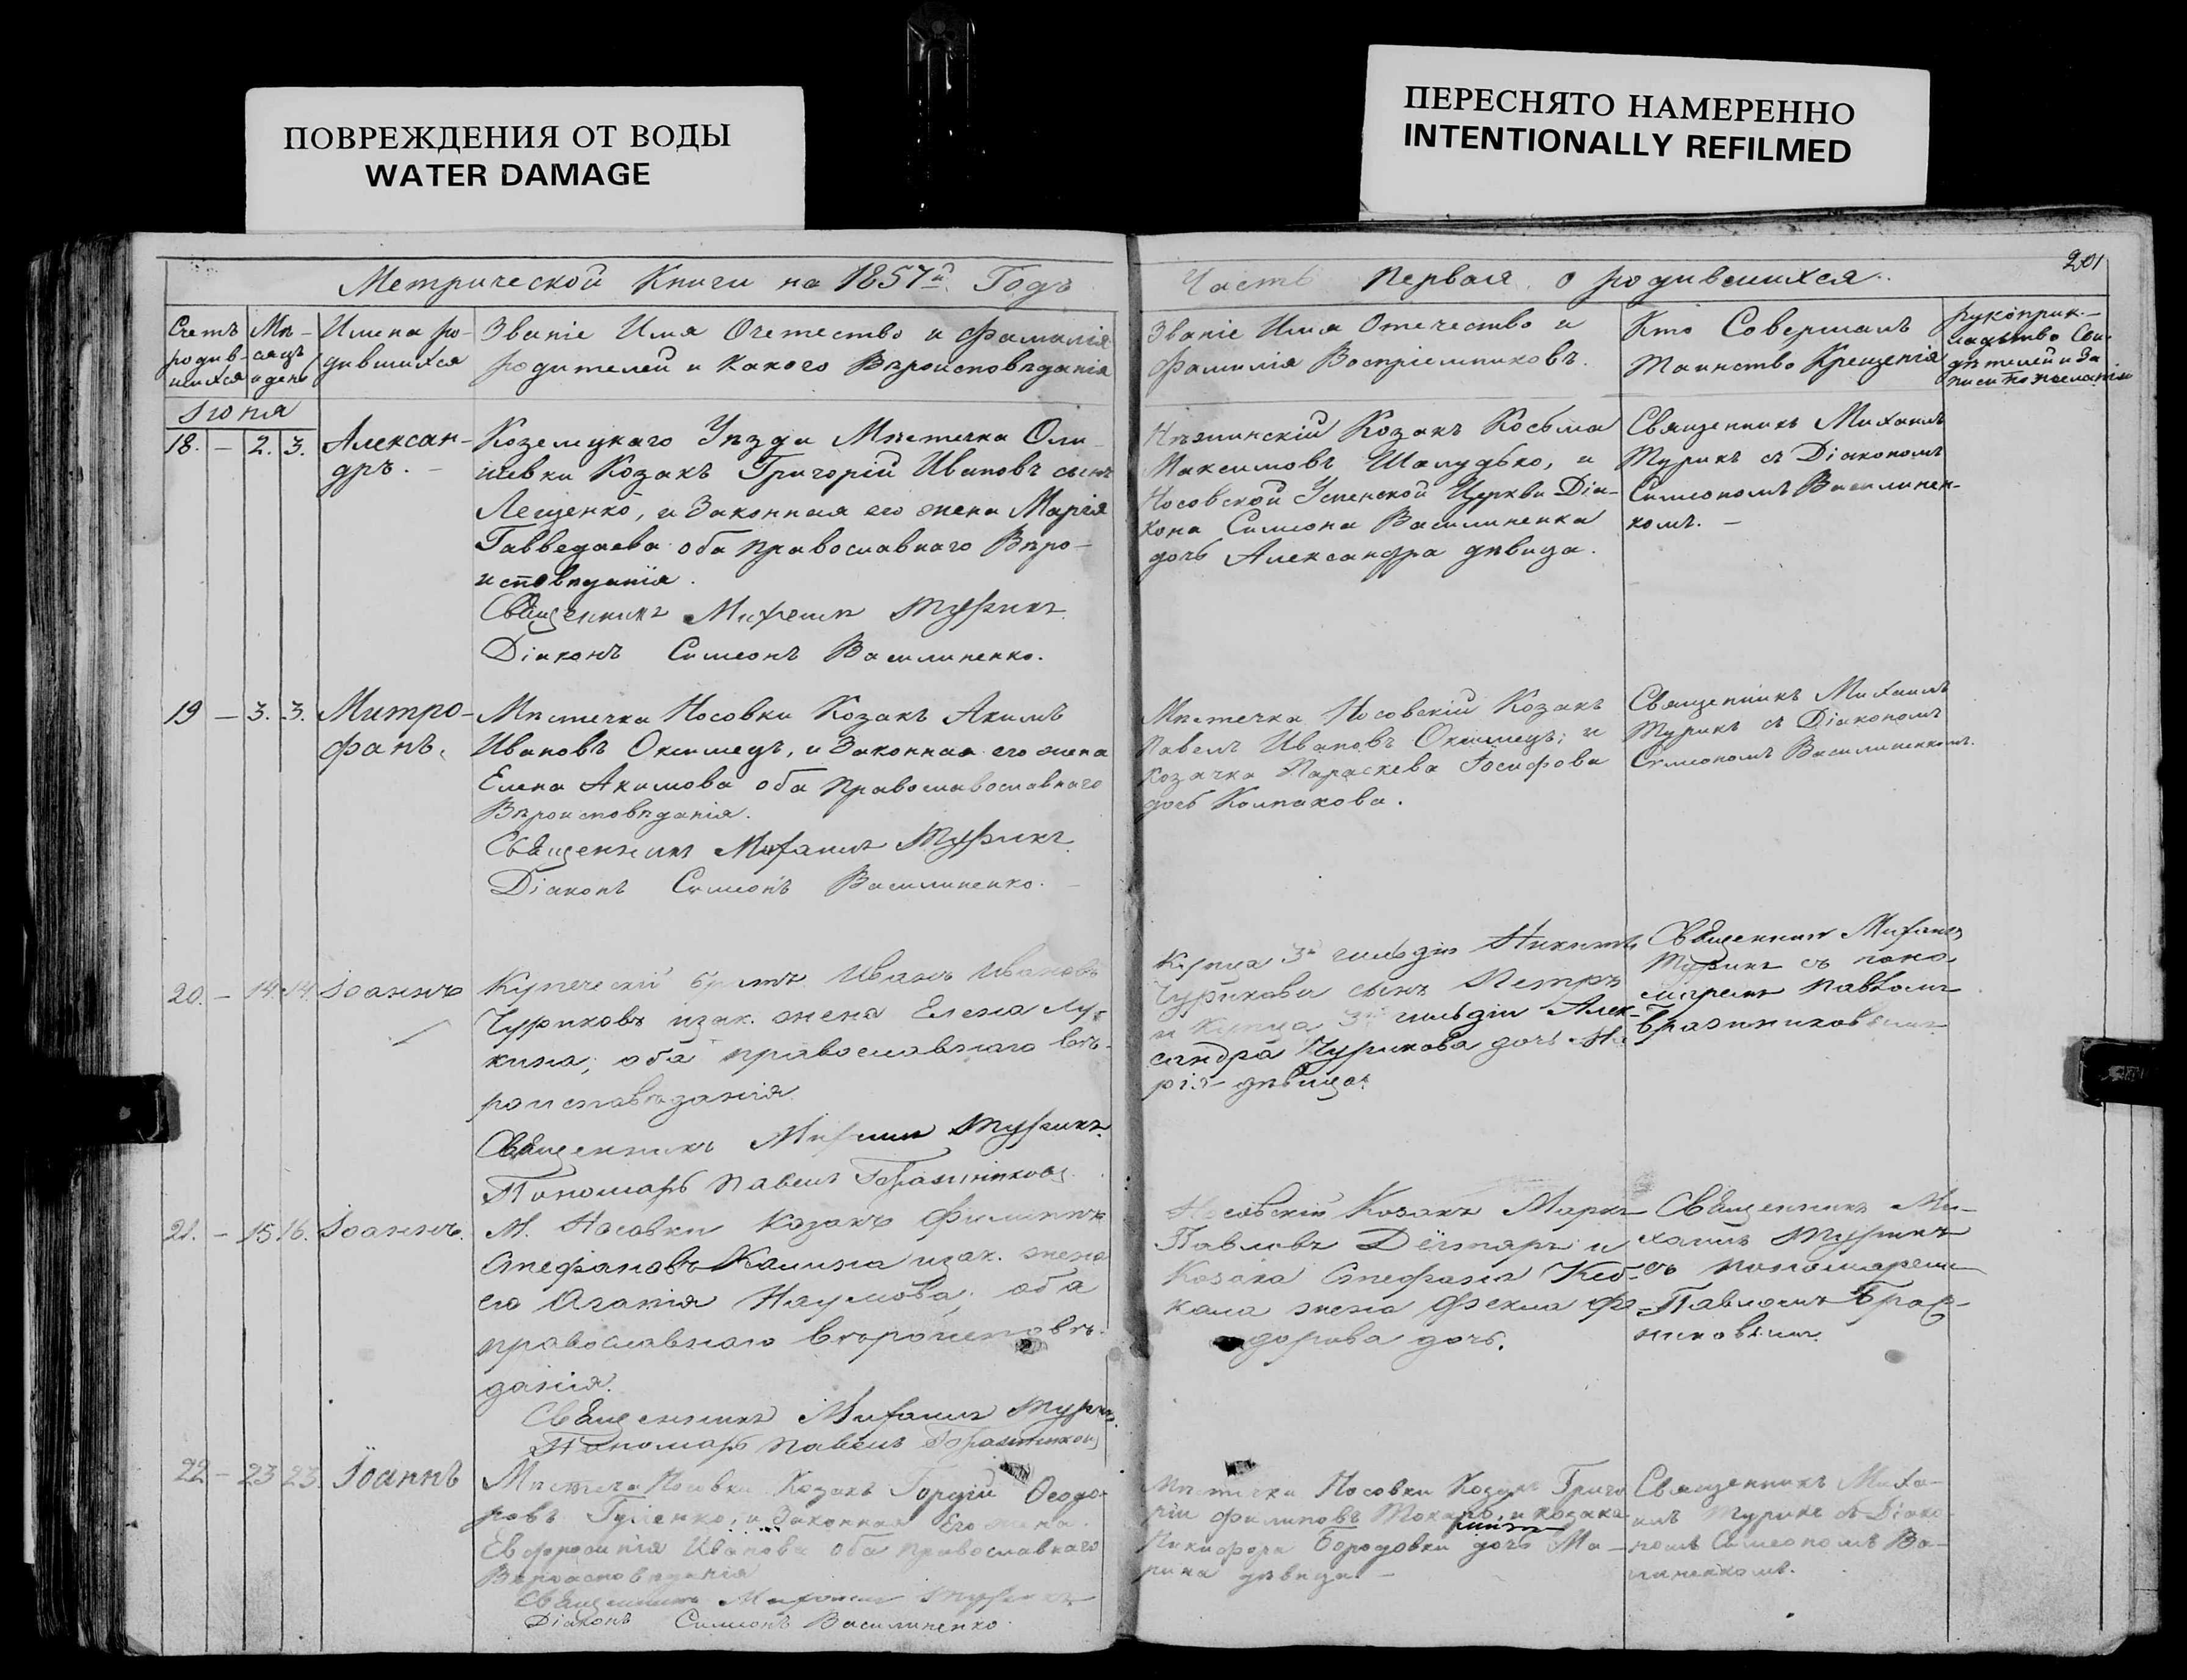 ПОВРЕЖДЕНИЯ ОТ ВОДЫ
WATER DAMAGE
ПЕРЕСНЯТО НАМЕРЕННО
INTENTIONALLY REFILMED
201
Метрической Книги на 1857й Годъ
Часть Первая о родившихся.
Счетъ родив-шихся
Мѣ-сяцъ и день
Имена ро-
дившихся
Званіе Имя Отечество и Фамилія
родителей и какого Вѣроисповѣданія
Званіе Имя Отечество и
Фамилія Воспріемниковъ.
Кто Совершалъ
Таинство Крещенія
Іюня
18. – 2. 3.
Алексан-
дръ. –
Козелецкаго Уѣзда Мѣстечка Оли-
шевки Козакъ Григорій Ивановъ сынъ
Лещенко, и Законная его жена Марія
оба Православнаго Вѣро-
исповѣданія.
Священникъ Михаилъ Турикъ
Діаконъ Симеонъ Василиненко.
Нѣжинскій Козакъ Косьма
Максимовъ Шалудько, и
Носовской Успенской Церкви Діа-
кона Симеона Василиненка
дочь Александра дѣвица.
Священникъ Михаилъ
Турикъ съ Діакономъ
Симеономъ Василинен-
комъ. –
19 – 3. 3.
Митро-
фанъ.
Мѣстечка Носовки Козакъ Акимъ
Ивановъ и Законная его жена
Елена Акимова оба Православославнаго
Вѣроисповѣданія.
Священникъ Михаилъ Турикъ
Діаконъ Симеонъ Василиненко. –
Мѣстечка Носовскій Козакъ
Павелъ Ивановъ и
Козачка Параскева Іосифова
дочь Колпакова.
Священникъ Михаилъ
Турикъ съ Діакономъ
Симеономъ Василиненкомъ.
20. – 14. 14.
Іоаннъ
Купеческій братъ Иванъ Ивановъ
Чуриковъ и зак. жена Елена Лу-
кина, оба православнаго вѣ-
роисповѣданія.
Священникъ Михаилъ Турикъ.
Пономарь Павелъ Бражниковъ
Купца 3й гильдіи Никиты
Чурикова сынъ Петръ
и Купца 3й гильдіи Алек-
сандра Чурикова дочь Ма-
рія дѣвица.
Священникъ Михаилъ
Турикъ съ поно-
маремъ Павломъ
Бражниковымъ
21. – 15 16.
Іоаннъ.
М. Носовки Козакъ Филиппъ
Стефановъ Калина и зак. жена
его Агапія Наумова, оба
православнаго вѣроисповѣ-
данія.
Священникъ Михаилъ Турикъ.
Пономарь Павелъ Бражниковъ
Носовскій Козакъ Маркъ
Павловъ Дёгтяръ и
Козака Стефана
жена Фекла Фе-
дорова дочь.
Священникъ Ми-
хаилъ Турикъ
съ пономаремъ
Павломъ Браж-
никовымъ.
22 – 23 23.
Іоаннъ
Мѣстечка Носовки Козакъ Гордій Феодо-
ровъ и Законная Его жена
Евфросинія Иванова оба Православнаго
Вѣроисповѣданія
Священникъ Михаилъ Турикъ
Діаконъ Симеонъ Василиненко.
Мѣстечка Носовки Козакъ Григо-
рій Филиповъ Токарь, и козака
Никифора Бородовки дочь Ма-
рина дѣвица. –
Священникъ Миха-
илъ Турикъ съ Діако-
номъ Симеономъ Ва-
линенкомъ.